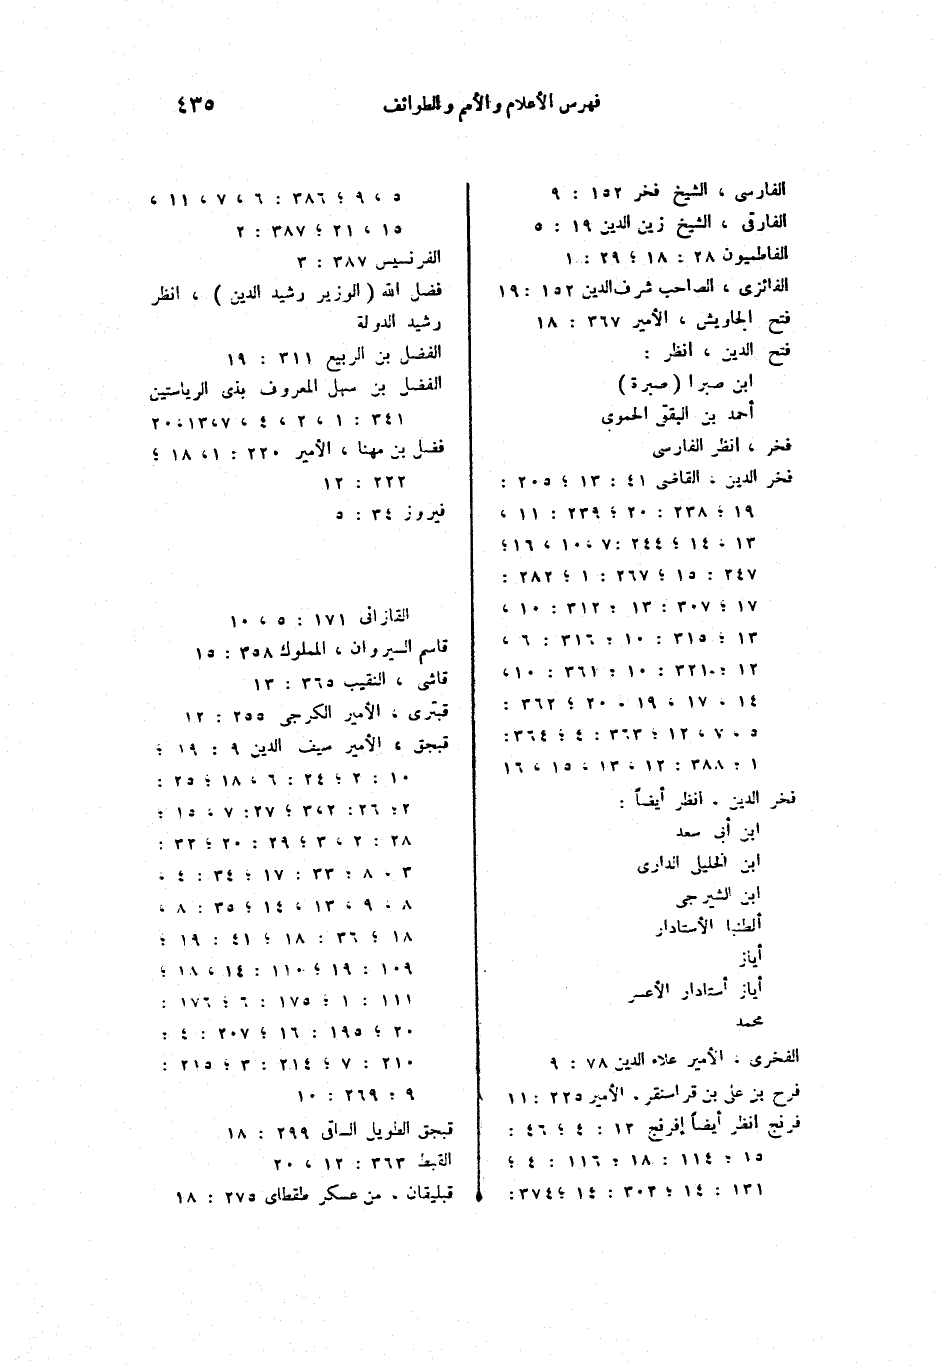 فهرس الأعلام والأمم والطوائف ٤٣٥
الفارسى ، الشيخ فخر ١٥٢ : ٩
الفارقى ، الشيخ زين الدين ١٩ : ٥
الفاطميون ٢٨ : ١٨ ؛ ٢٩ : ١
الفائزى ، الصاحب شرف الدين ١٥٢ : ١٩
فتح الجاويش ، الأمير ٣٦٧ : ١٨
فتح الدين ، انظر :
ابن صبرا (صبرة)
أحمد بن البققى الحموى
فخر ، انظر الفارسى
فخر الدين ، القاضى ٤١ : ١٣ ؛ ٢٠٥ :
١٩ ؛ ٢٣٨ : ٢٠ ؛ ٢٣٩ : ١١ ،
١٣ ، ١٤ ؛ ٢٤٤ : ٧ ، ١٠ ، ١٦ ؛
٢٤٧ : ١٥ ؛ ٢٦٧ : ١ ؛ ٢٨٢ :
١٧ ؛ ٣٠٧ : ١٣ ؛ ٣١٢ : ١٠ ،
١٣ ؛ ٣١٥ : ١٠ ؛ ٣١٦ : ٦ ،
١٢ ؛ ٣٢١ : ١٠ ؛ ٣٦١ : ١٠ ،
١٤ ، ١٧ ، ١٩ ، ٢٠ ؛ ٣٦٢ :
٥ ، ٧ ، ١٢ ؛ ٣٦٣ : ٤ ؛ ٣٦٤ :
١ ؛ ٣٨٨ : ١٢ ، ١٣ ، ١٥ ، ١٦
فخر الدين ، انظر أيضاً :
ابن أبى سعد
ابن الخليلى الدارى
ابن الشيرجى
ألطنبا الأستادار
أياز
أياز أستادار الأعسر
محمد
الفخرى ، الأمير علاء الدين ٧٨ : ٩
فرح بن على بن قراسنقر ، الأمير ٢٢٥ : ١١
فرنج انظر أيضاً إفرنج ١٢ : ٤ ؛ ٤٦ :
١٥ ؛ ١١٤ : ١٨ ؛ ١١٦ : ٤ ؛
١٣١ : ١٤ ؛ ٣٠٣ : ١٤ ؛ ٣٧٤ :
٥ ، ٩ ؛ ٣٨٦ : ٦ ، ٧ ، ١١ ،
١٥ ، ٢١ ؛ ٣٨٧ : ٢
الفرنسيس ٣٨٧ : ٣
فضل الله (الوزير رشيد الدين) ، انظر
رشيد الدولة
الفضل بن الربيع ٣١١ : ١٩
الفضل بن سهل المعروف بذى الرياستين
٣٤١ : ١ ، ٢ ، ٤ ، ٧ ، ١٣ ، ٢٠
فضل بن مهنا ، الأمير ٢٢٠ : ١ ، ١٨ ؛
٢٢٢ : ١٢
فيروز ٣٤ : ٥
القازانى ١٧١ : ٥ ، ١٠
قاسم السيروان ، المملوك ٣٥٨ : ١٥
قاشى ، النقيب ٣٦٥ : ١٣
قبترى ، الأمير الكرجى ٢٥٥ : ١٢
قبجق ، الأمير سيف الدين ٩ : ١٩ ؛
١٠ : ٢ ؛ ٢٤ : ٦ ، ١٨ ؛ ٢٥ :
٢ ؛ ٢٦ : ٢ ، ٣ ؛ ٢٧ : ٧ ، ١٥ ؛
٢٨ : ٢ ، ٣ ؛ ٢٩ : ٢٠ ؛ ٣٢ :
٣ ، ٨ ؛ ٣٣ : ١٧ ؛ ٣٤ : ٤ ،
٨ ، ٩ ، ١٣ ، ١٤ ؛ ٣٥ : ٨ ،
١٨ ؛ ٣٦ : ١٨ ؛ ٤١ : ١٩ ؛
١٠٩ : ١٩ ؛ ١١٠ : ١٤ ، ١٨ ؛
١١١ : ١ ؛ ١٧٥ : ٦ ؛ ١٧٦ :
٢٠ ؛ ١٩٥ : ١٦ ؛ ٢٠٧ : ٤ ؛
٢١٠ : ٧ ؛ ٢١٤ : ٣ ؛ ٢١٥ :
٩ ؛ ٢٦٩ : ١٠
قبجق الطويل الساقى ٢٩٩ : ١٨
القبط ٣٦٣ : ١٢ ، ٢٠
قبليقان ، من عسكر طقطاى ٢٧٥ : ١٨